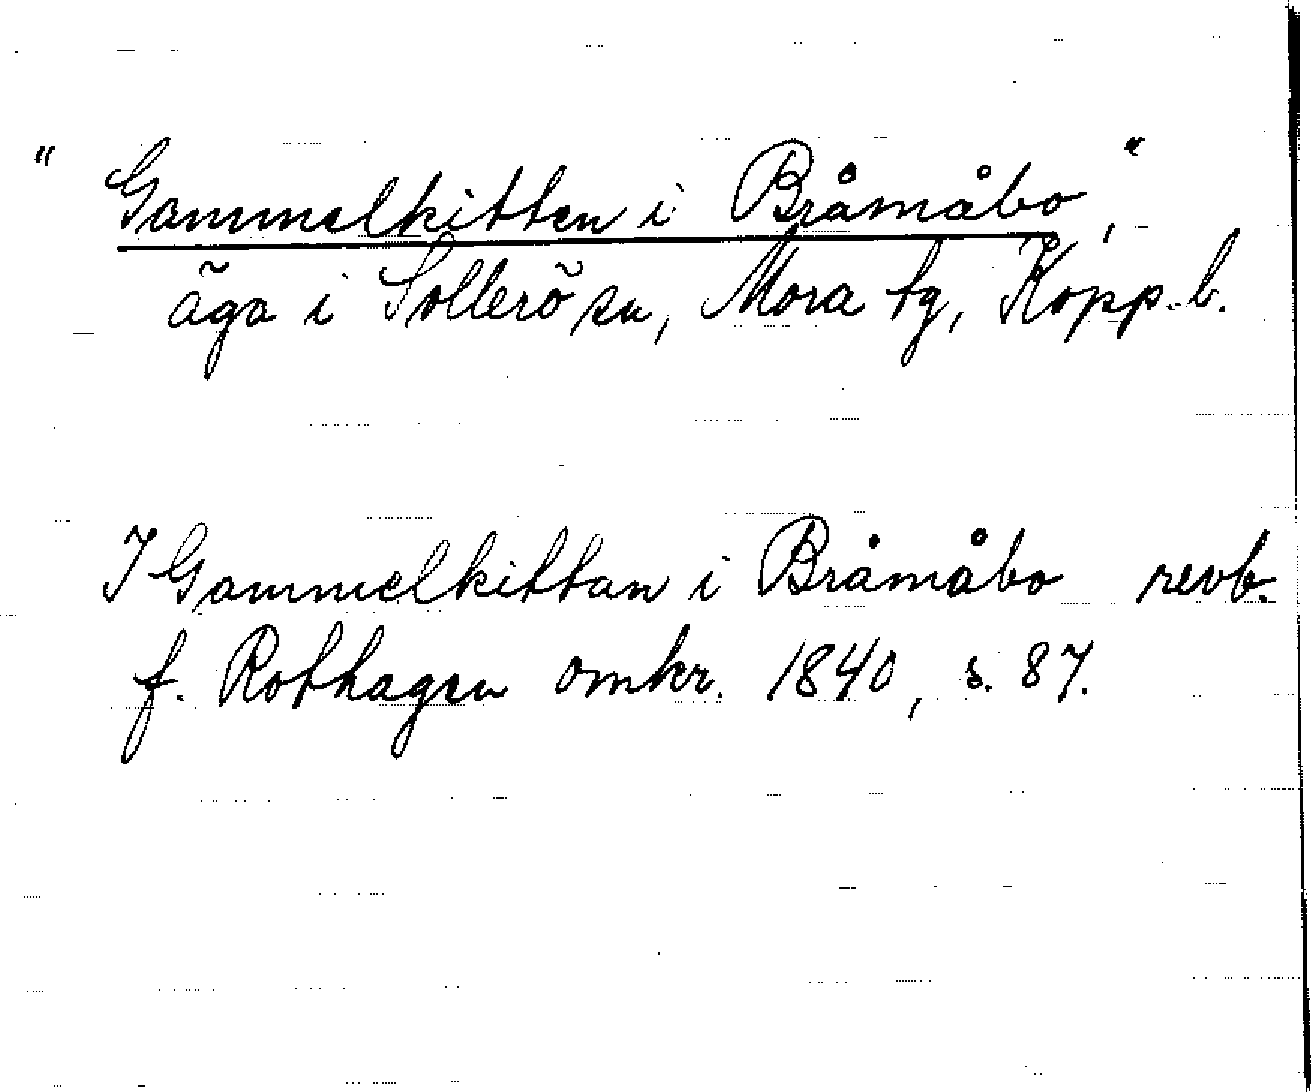 "Gammelkitten i Bråmåbo",
äga i Sollerö sn, Mora tg, Kopp. l.
I Gammelkittan i Bråmåbo revb.
f. Rothagen omkr. 1840, s. 87.